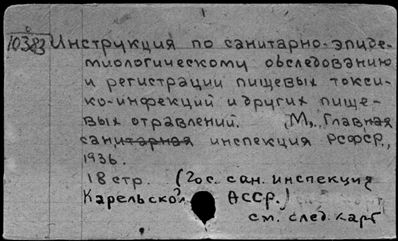 10383 Инструкция по санитарно-эпиде-
миологическому обследованию
и регистрации пищевых токси-
ко-инфекций и других пище-
вых отравлений. М., Главная
санитарная инспекция РСФСР,
1936.
18 стр. (Гос. сан. инспекция
Карельской АССР.)
см. след. карт